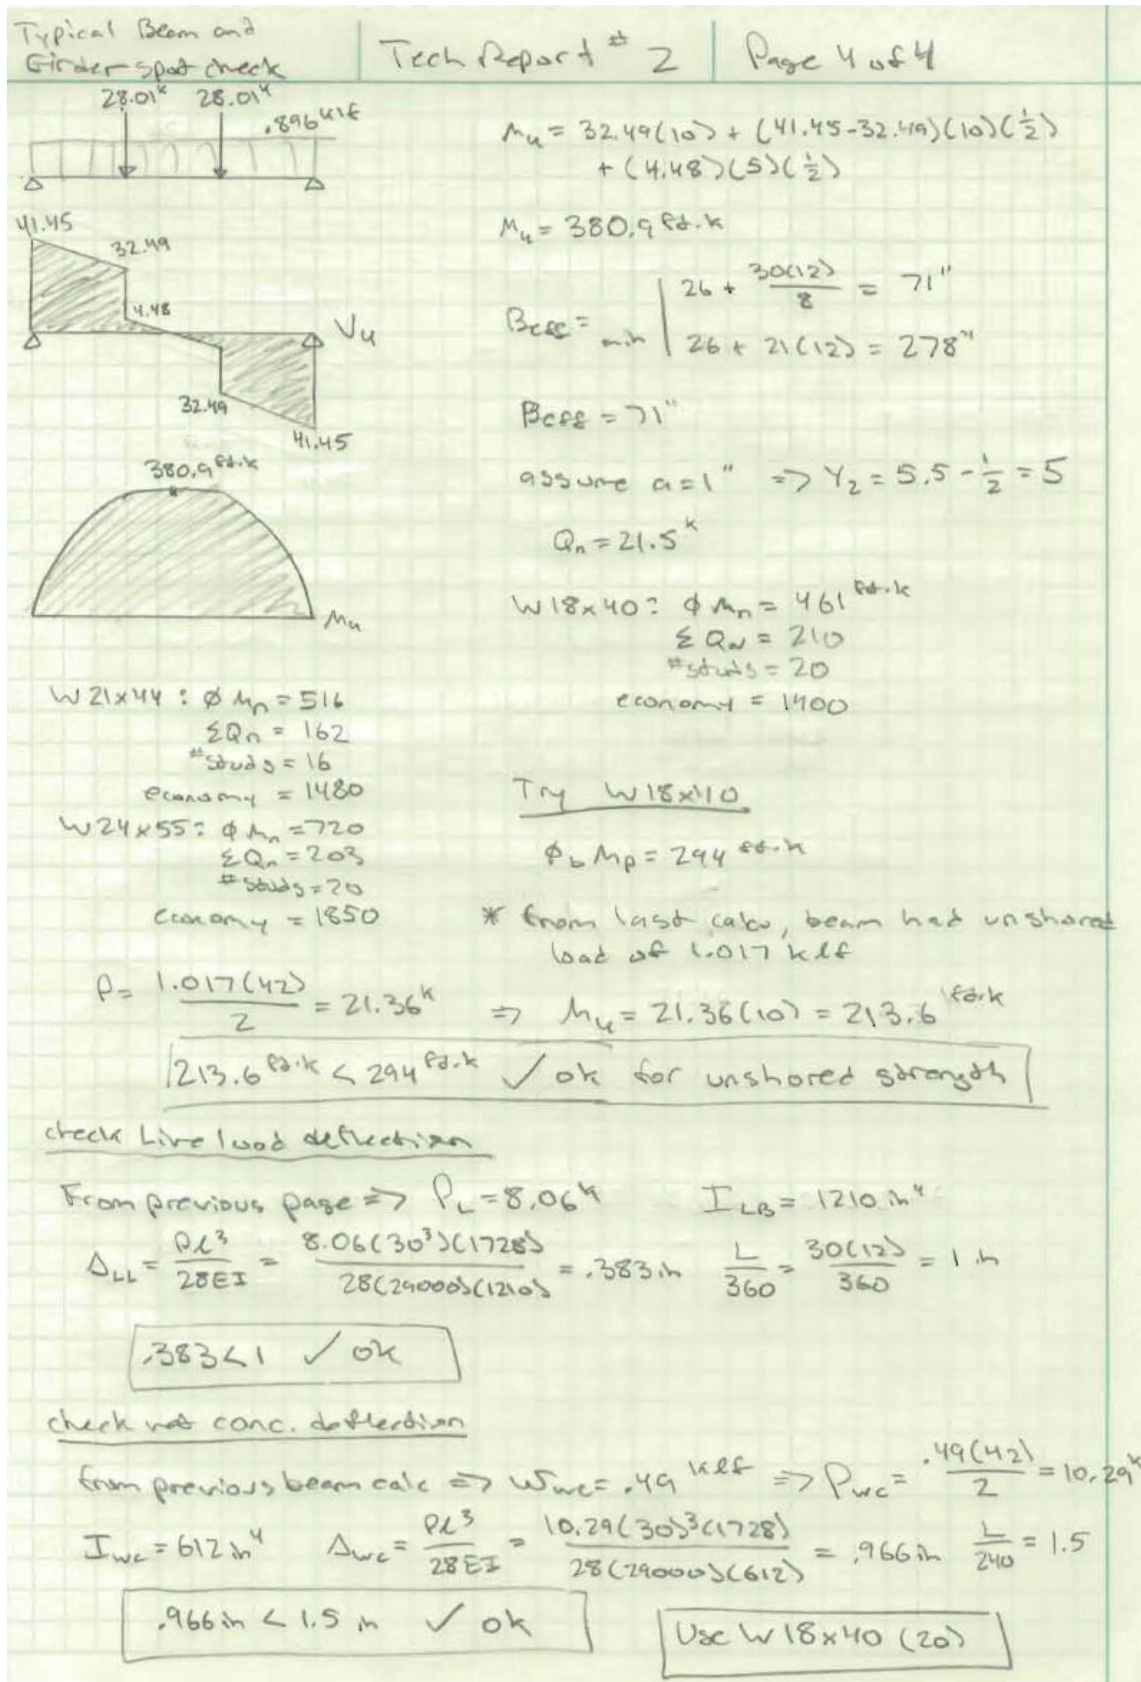 Typical Beam and
Girder spot check
Tech Report # 2
Page 4 of 4
28.01ᵏ 28.01ᵏ
.896 klf
41.45
32.49
4.48
Vu
32.49
41.45
380.9 ft.k
Mu
Mu = 32.49(10) + (41.45-32.49)(10)(½)
+ (4.48)(5)(½)
Mu = 380.9 ft.k
Beff = min | 26 + 30(12)/8 = 71"
26 + 21(12) = 278"
Beff = 71"
assume a=1" => Y₂ = 5.5 - ½ = 5
Qn = 21.5ᵏ
W18x40: φMn = 461 ft.k
ΣQn = 210
#studs = 20
economy = 1400
W21x44: φMn = 516
ΣQn = 162
#studs = 16
economy = 1480
W24x55: φMn = 720
ΣQn = 203
#studs = 20
economy = 1850
Try W18x40
φb Mp = 294 ft.k
* from last calc, beam had unshored
load of 1.017 klf
P = 1.017(42)/2 = 21.36ᵏ => Mu = 21.36(10) = 213.6 ft.k
213.6 ft.k < 294 ft.k ✓ ok for unshored strength
check Live load deflection
From previous page => PL = 8.06ᵏ ILB = 1210 in⁴
ΔLL = Pl³/28EI = 8.06(30³)(1728)/28(29000)(1210) = .383 in L/360 = 30(12)/360 = 1 in
.383<1 ✓ ok
check wet conc. deflection
from previous beam calc => Wwc = .49 klf => Pwc = .49(42)/2 = 10.29ᵏ
Iwc = 612 in⁴ Δwc = Pl³/28EI = 10.29(30)³(1728)/28(29000)(612) = .966 in L/240 = 1.5
.966 in < 1.5 in ✓ ok
Use W18x40 (20)